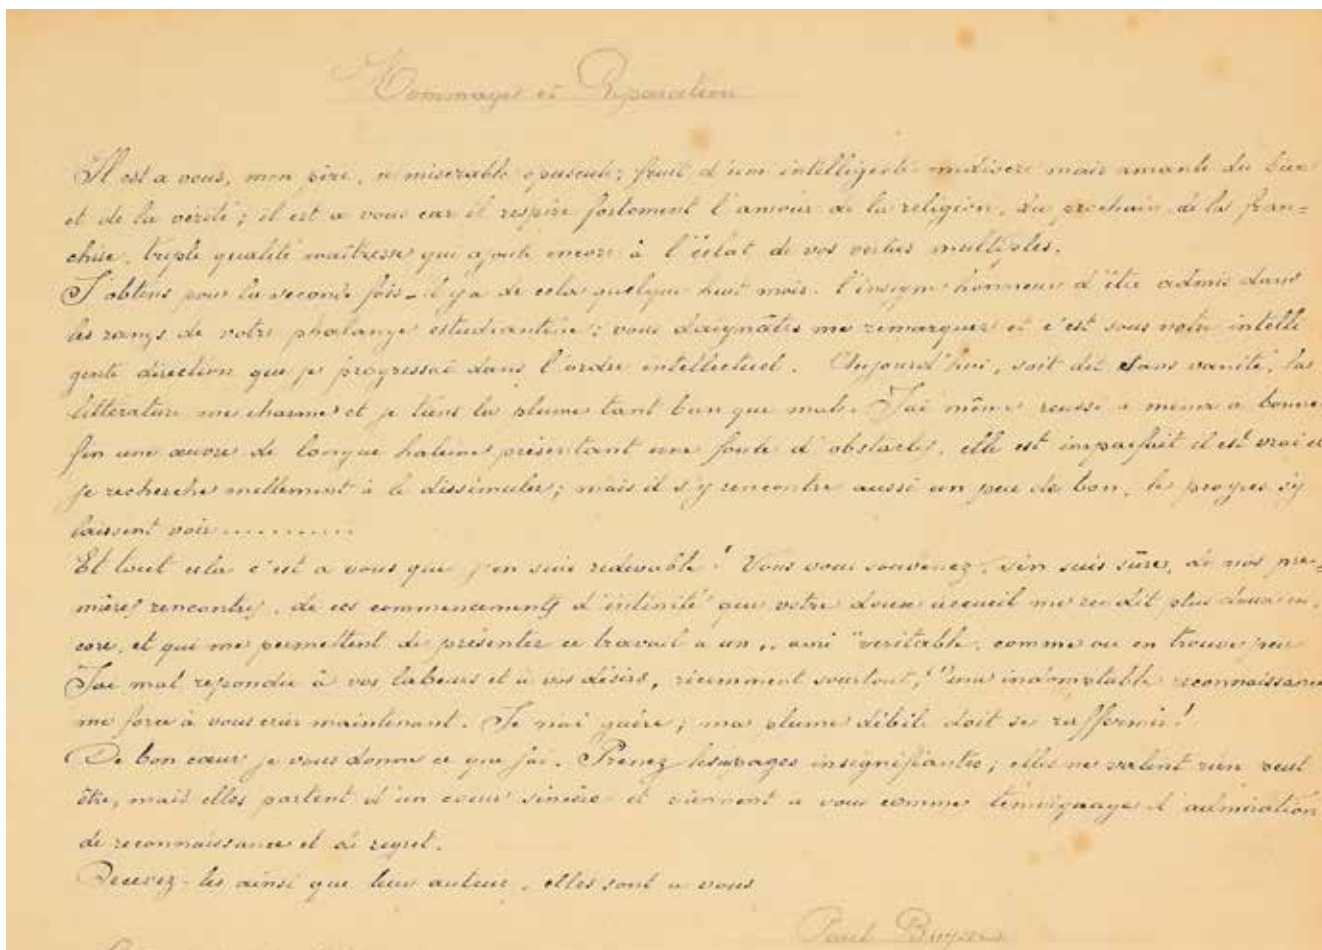 Hommages et Réparation
Il est a vous, mon père, ce miserable opuscule; fruit d'une intelligente médiocre mais amante du bien
et de la vérité; il est a vous car il respire fortement l'amour de la religion, du prochain de la fran=
chise, triple qualité maîtresse qui ajoute encore à l'éclat de vos vertus multiples.
J'obtens pour la seconde fois - il y a de cela quelque huit mois - l'insigne honneur d'être admis dans
les rangs de votre phalange estudiantine; vous daignâtes me remarquer et c'est sous votre intelli
gente direction que je progressai dans l'ordre intellectuel. Aujourd'hui, soit dit sans vanité, la
littérature me charme et je tiens la plume tant bien que mal. J'ai même reussi a mener a bonne
fin une œuvre de longue haleine présentant une foule d'obstacles, elle est imparfait il est vrai et
je recherche nullement à le dissimuler; mais il s'y rencontre aussi un peu de bon, le progres s'y
laissent voir.............
Et tout cela c'est a vous que j'en suis redevable! Vous vous souvenez, j'en suis sûre, de nos pre=
mières rencontres, de ces commencements d'intimité que votre doux accueil me rendit plus doux en-
core, et qui me permettent de présenter ce travail a un „ ami " veritable, comme on en trouve peu
J'ai mal repondu à vos labeurs et a vos désirs, récemment surtout, une indomptable reconnaissance
me force à vous crier maintenant. Je n'ai guère; ma plume débile doit se raffermir!
De bon cœur je vous donne ce que j'ai. Prenez les pages insignifiantes; elles ne valent rien peut
être, mais elles partent d'un cœur sincère et viennent a vous comme témoignages d'admiration
de reconnaissance et de regret.
Recevez-les ainsi que leur auteur, elles sont a vous
Paul